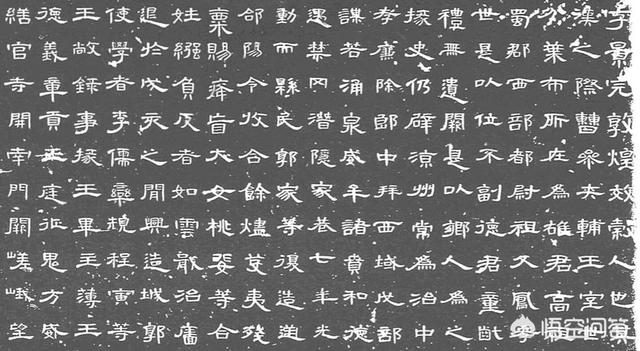 字景完敦煌效穀人也其
漢之際曹參夾輔王室世
分葉布所在為雄君高
蜀郡西部都尉祖父鳳孝
世是以位不副德君童齔
禮無遺闕是以鄉人為之
掾史仍辟涼州常為治中
孝廉除郎中拜西域戊部
謀若涌泉威牟諸賁和德
遇禁冈潛隱家巷七年光
動而縣民郭家等復造逆
郃陽令收合餘燼芟夷殘
稟賜瘖盲大女桃婓等合
妊繈負反者如雲戢治廧
追於戌亥之間興造城郭
使學者李儒欒規程寅等
王敞錄事掾王畢主薄王
德義章貢王庭征鬼方威
繕官寺開南門闕嵯峨望
悟空问答